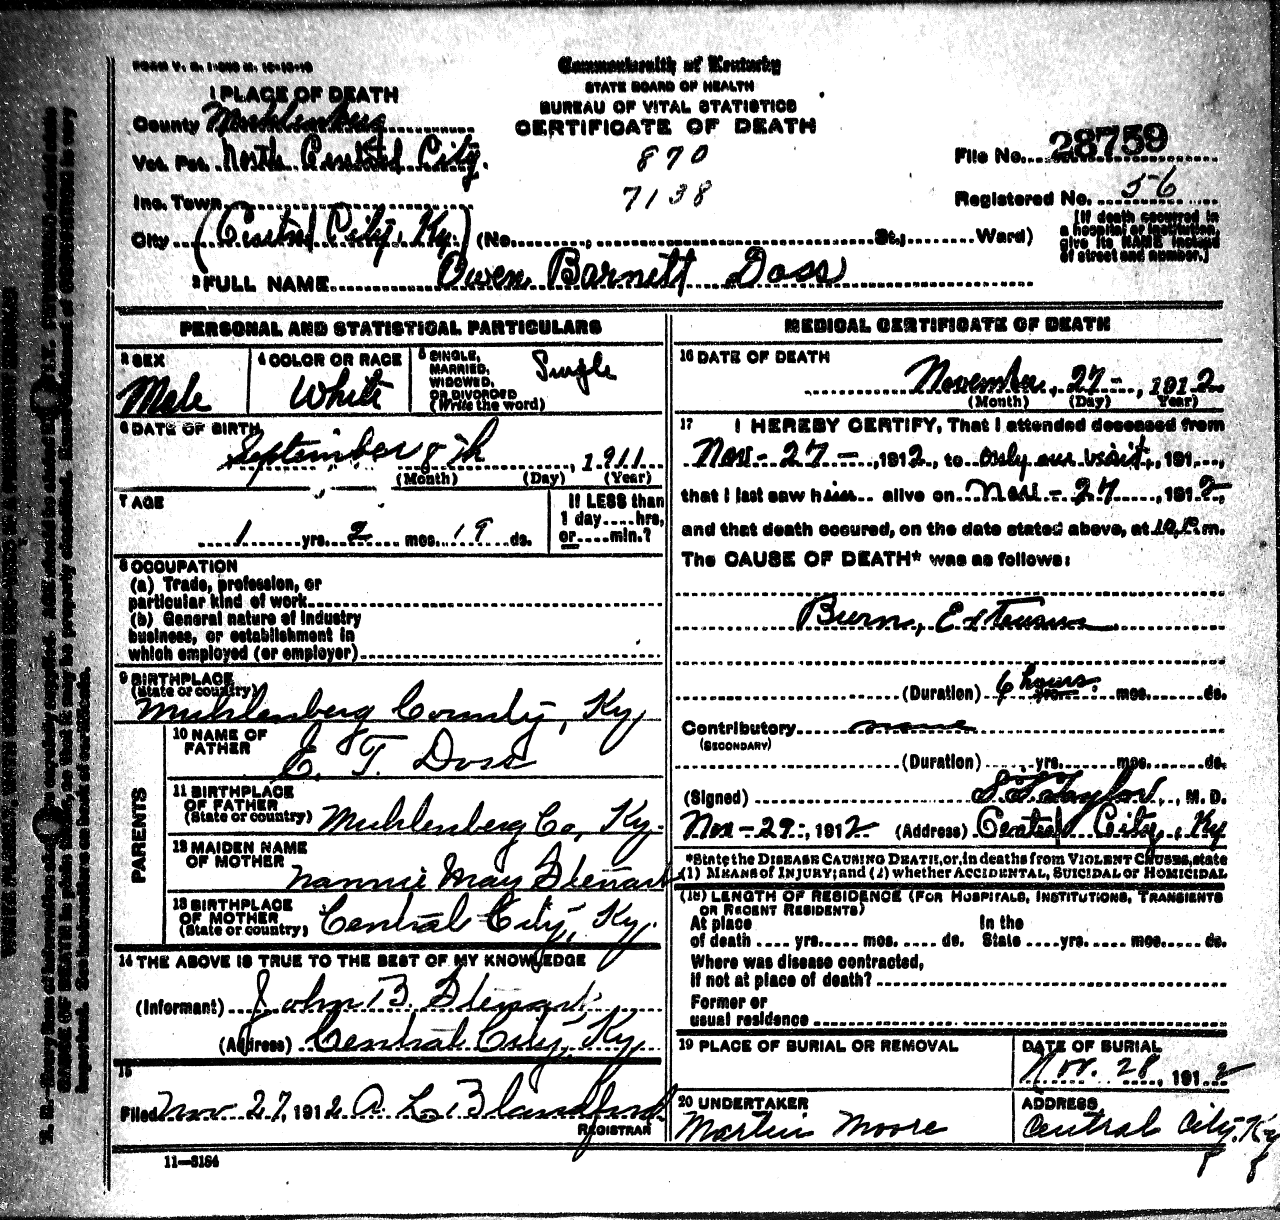 Commonwealth of Kentucky
STATE BOARD OF HEALTH
BUREAU OF VITAL STATISTICS
CERTIFICATE OF DEATH
1 PLACE OF DEATH
County Muhlenberg
Vot. Pct. North Central City.
870
File No. 28759
Inc. Town
7138
Registered No. 56
City (Central City, Ky.) (No. , St., Ward)
(If death occurred in
a hospital or institution,
give its NAME instead
of street and number.)
2 FULL NAME Owen Barnett Doss
PERSONAL AND STATISTICAL PARTICULARS
3 SEX
Male
4 COLOR OR RACE
White
5 SINGLE,
MARRIED,
WIDOWED,
OR DIVORCED
(Write the word)
Single
6 DATE OF BIRTH
September 8th, 1911
(Month) (Day) (Year)
7 AGE
1 yrs. 2 mos. 19 ds.
If LESS than
1 day....hrs,
or....min.?
8 OCCUPATION
(a) Trade, profession, or
particular kind of work
(b) General nature of industry
business, or establishment in
which employed (or employer)
9 BIRTHPLACE
(State or country)
Muhlenberg County, Ky,
PARENTS
10 NAME OF
FATHER
E. T. Doss
11 BIRTHPLACE
OF FATHER
(State or country) Muhlenberg Co, Ky.
12 MAIDEN NAME
OF MOTHER
Nannie May Stewart
13 BIRTHPLACE
OF MOTHER
(State or country) Central City, Ky.
14 THE ABOVE IS TRUE TO THE BEST OF MY KNOWLEDGE
(Informant) John B. Stewart
(Address) Central City, Ky,
15
Filed Nov 27, 1912 A. L. Blandford
REGISTRAR
11—3184
MEDICAL CERTIFICATE OF DEATH
16 DATE OF DEATH
November, 27-, 1912
(Month) (Day) Year)
17 I HEREBY CERTIFY, That I attended deceased from
Nov- 27 -, 1912, to only one visit, 191
that I last saw him alive on Nov - 27, 1912,
and that death occured, on the date stated above, at 10, P.m.
The CAUSE OF DEATH* was as follows:
Burn, Extensive
(Duration) 6 hours. yrs. mos. ds.
Contributory none
(SECONDARY)
(Duration) yrs. mos. ds.
(Signed) Taylor, M. D.
Nov-29-, 1912 (Address) Central City, Ky
*State the DISEASE CAUSING DEATH, or, in deaths from VIOLENT CAUSES, state
(1) MEANS of INJURY; and (2) whether ACCIDENTAL, SUICIDAL or HOMICIDAL
(18) LENGTH OF RESIDENCE (FOR HOSPITALS, INSTITUTIONS, TRANSIENTS
OR RECENT RESIDENTS)
At place In the
of death .... yrs..... mos. .... ds. State ....yrs..... mos..... ds.
Where was disease contracted,
if not at place of death?
Former or
usual residence
19 PLACE OF BURIAL OR REMOVAL
DATE OF BURIAL
Nov. 28, 1912
20 UNDERTAKER
Martin Moore
ADDRESS
Central City, Ky